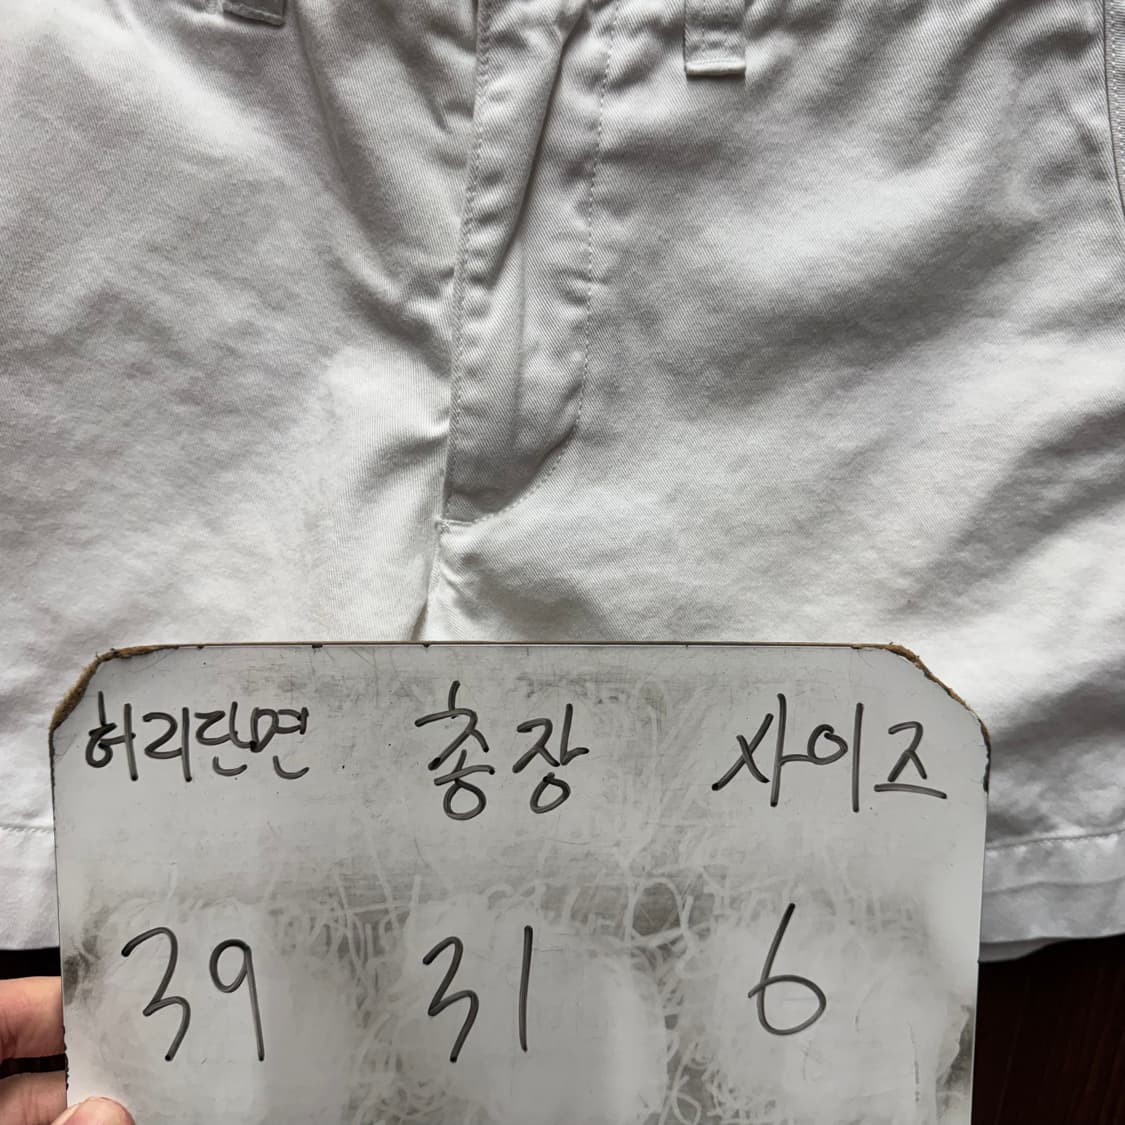 허리단면 총장 사이즈
39 31 6